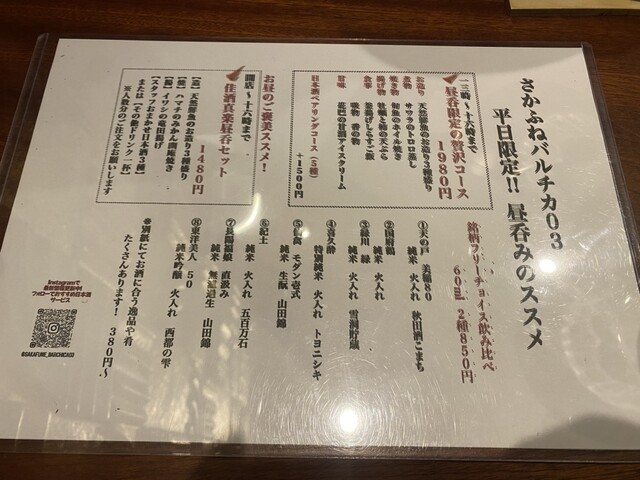 さかふねバルチカ03
平日限定!! 昼呑みのススメ
一三時〜十六時まで
昼呑限定の贅沢コース
1980円
お造り 天然鮮魚のお造り3種盛り
煮物 サワラのトロロ蒸し
焼き物 旬魚のホイル焼き
揚げ物 牡蠣と柿の天ぷら
食事 釜揚げしらすご飯
吸物 香の物
甘味 花巴の甘酒アイスクリーム
日本酒ペアリングコース（5種）
+1500円
お昼のご褒美ススメ!
開店〜十六時まで
佳酒真楽昼呑セット
1480円
【造】天然鮮魚のお造り3種盛り
【焼】ハマチのみかん幽庵焼き
【揚】イワシの竜田揚げ
【スタッフおまかせ日本酒3種】
または【その他ドリンク一杯】
※人数分のご注文をお願いします
銘柄フリーチョイス飲み比べ
60㎖ 2種850円
①天の戸 美稲80
純米 火入れ 秋田酒こまち
②国府鶴
純米 火入れ
③緑川 緑
純米 火入れ 雪洞貯蔵
④喜久酔
特別純米 火入れ トヨニシキ
⑤仙禽 モダン壱式
純米 生酛 山田錦
⑥紀土
純米 火入れ 五百万石
⑦長陽福娘 直汲み
純米 無濾過生 山田錦
⑧東洋美人 50
純米吟醸 火入れ 西都の雫
※別紙にてお酒に合う逸品や肴
たくさんあります! 380円〜
Instagramで
フォローでおすすめ日本酒
サービス
@SAKAFUNE_BARCHICA03